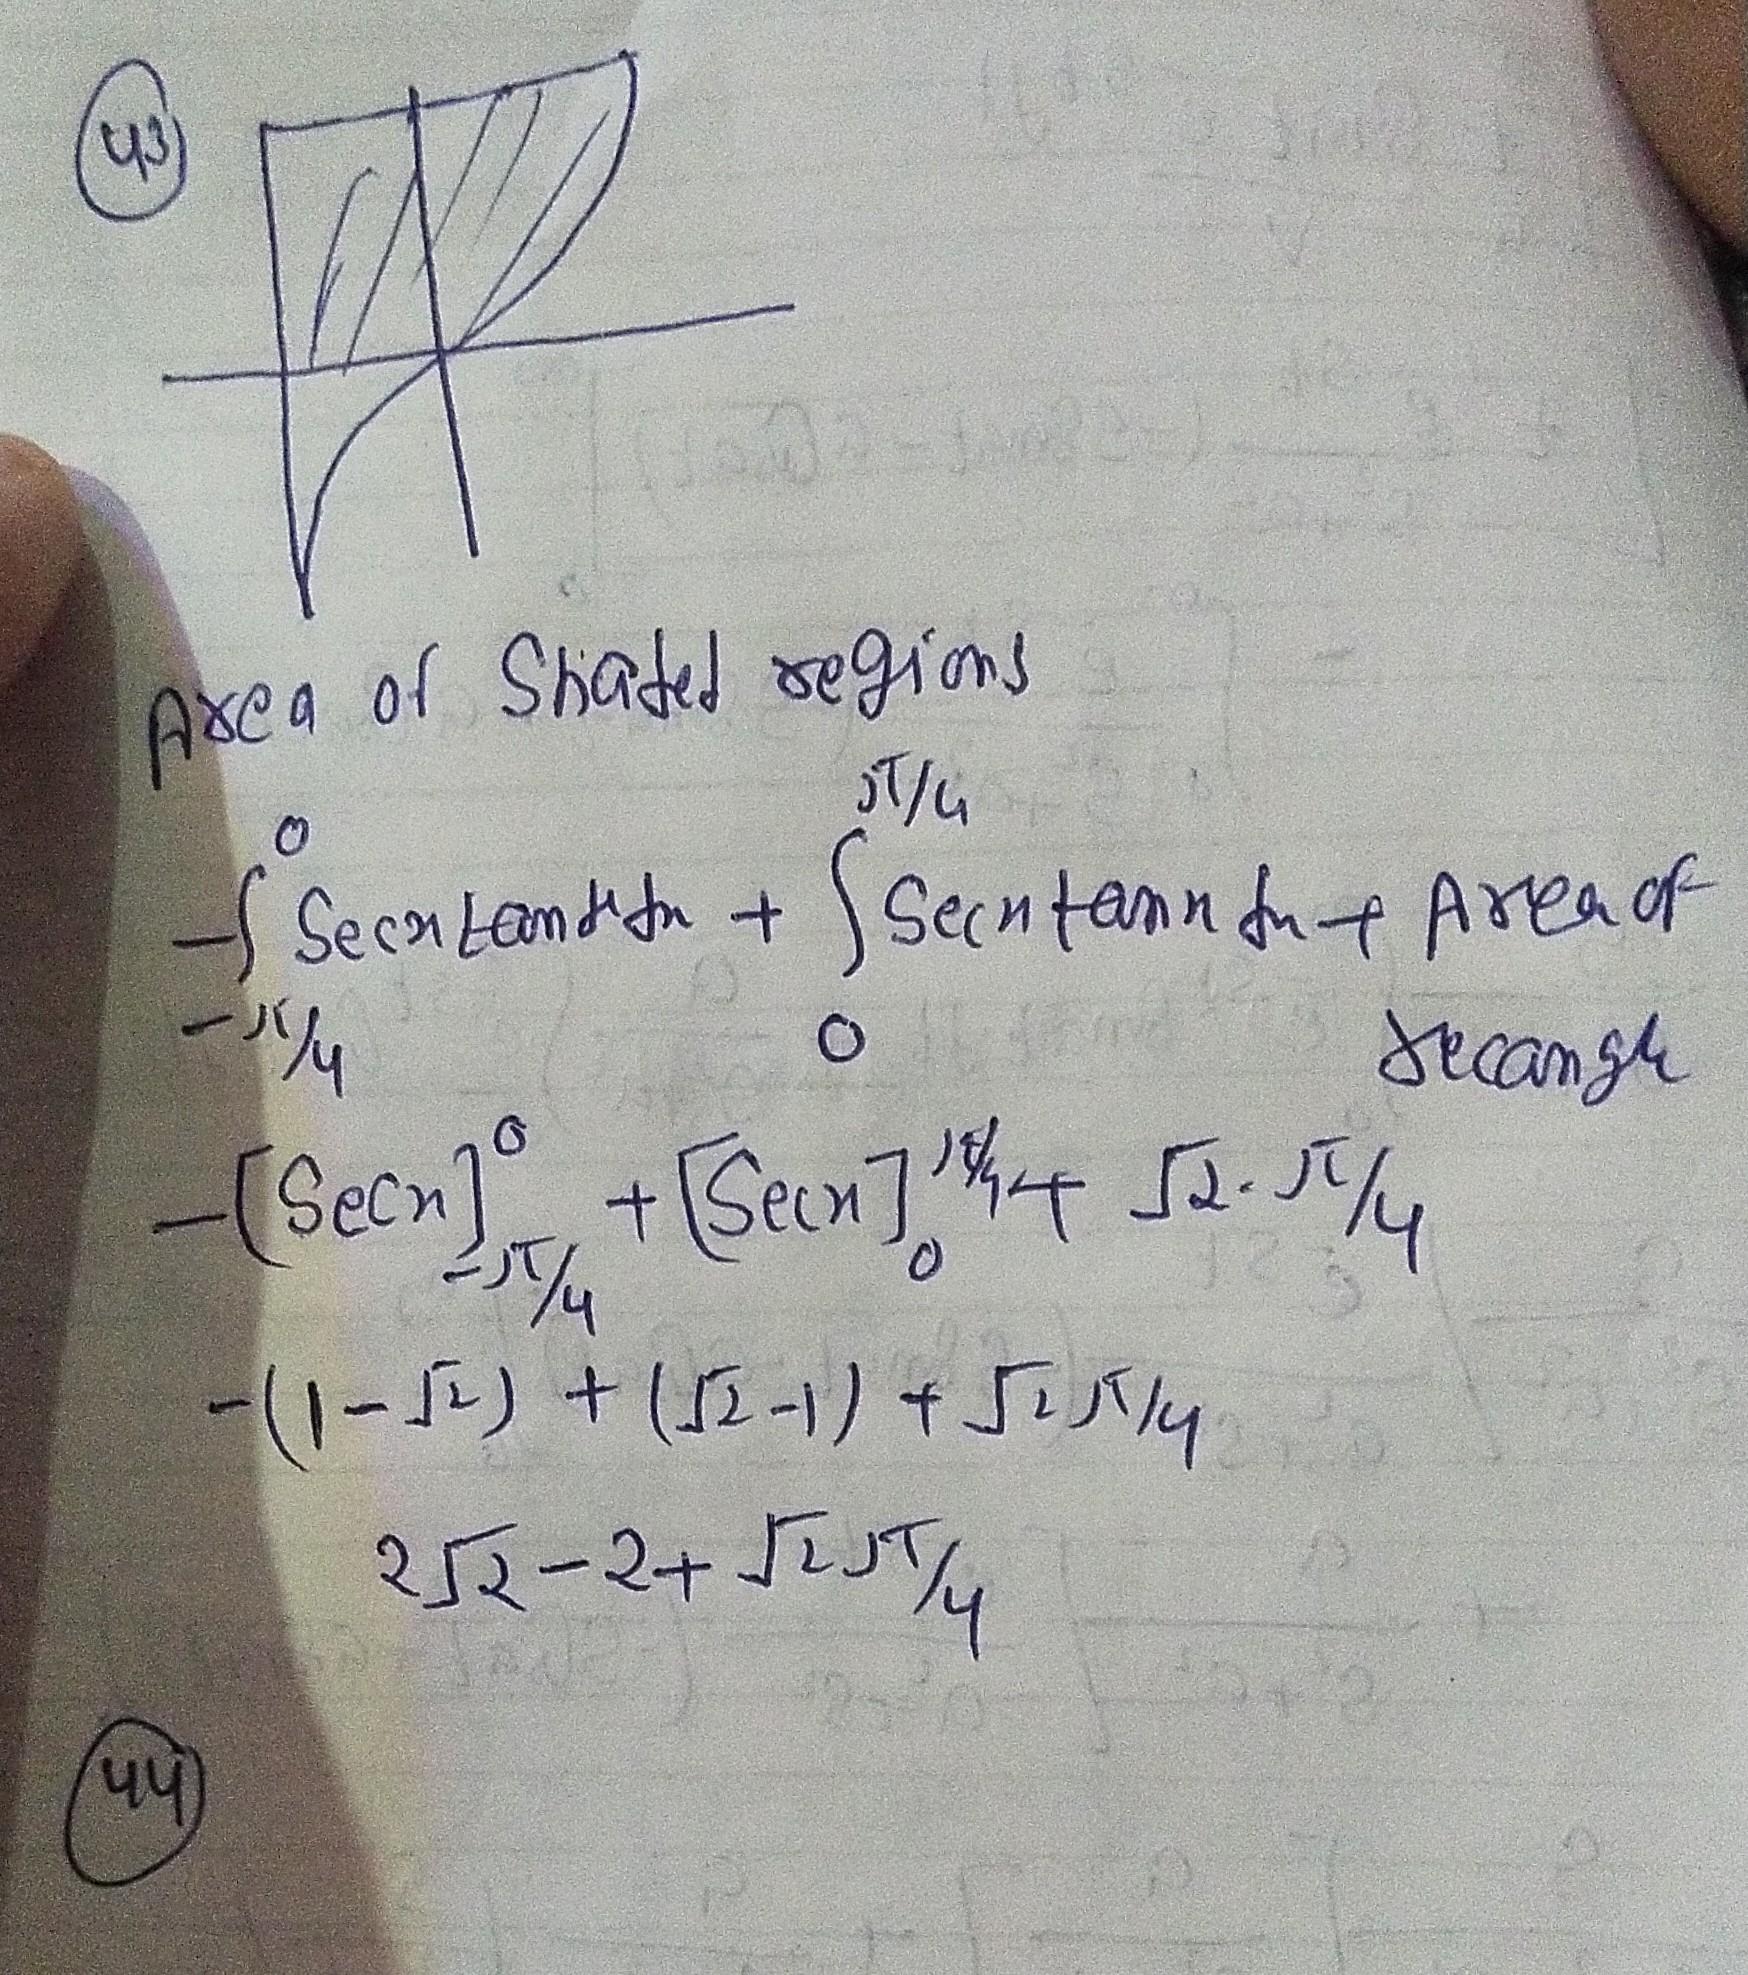 43
Area of Shaded regions
-∫_{-π/4}^{0} Secx tanx dx + ∫_{0}^{π/4} Secx tanx dx + Area of
recangle
-[Secx]_{-π/4}^{0} + [Secx]_{0}^{π/4} + √2·π/4
-(1-√2) + (√2-1) + √2π/4
2√2-2+√2π/4
44